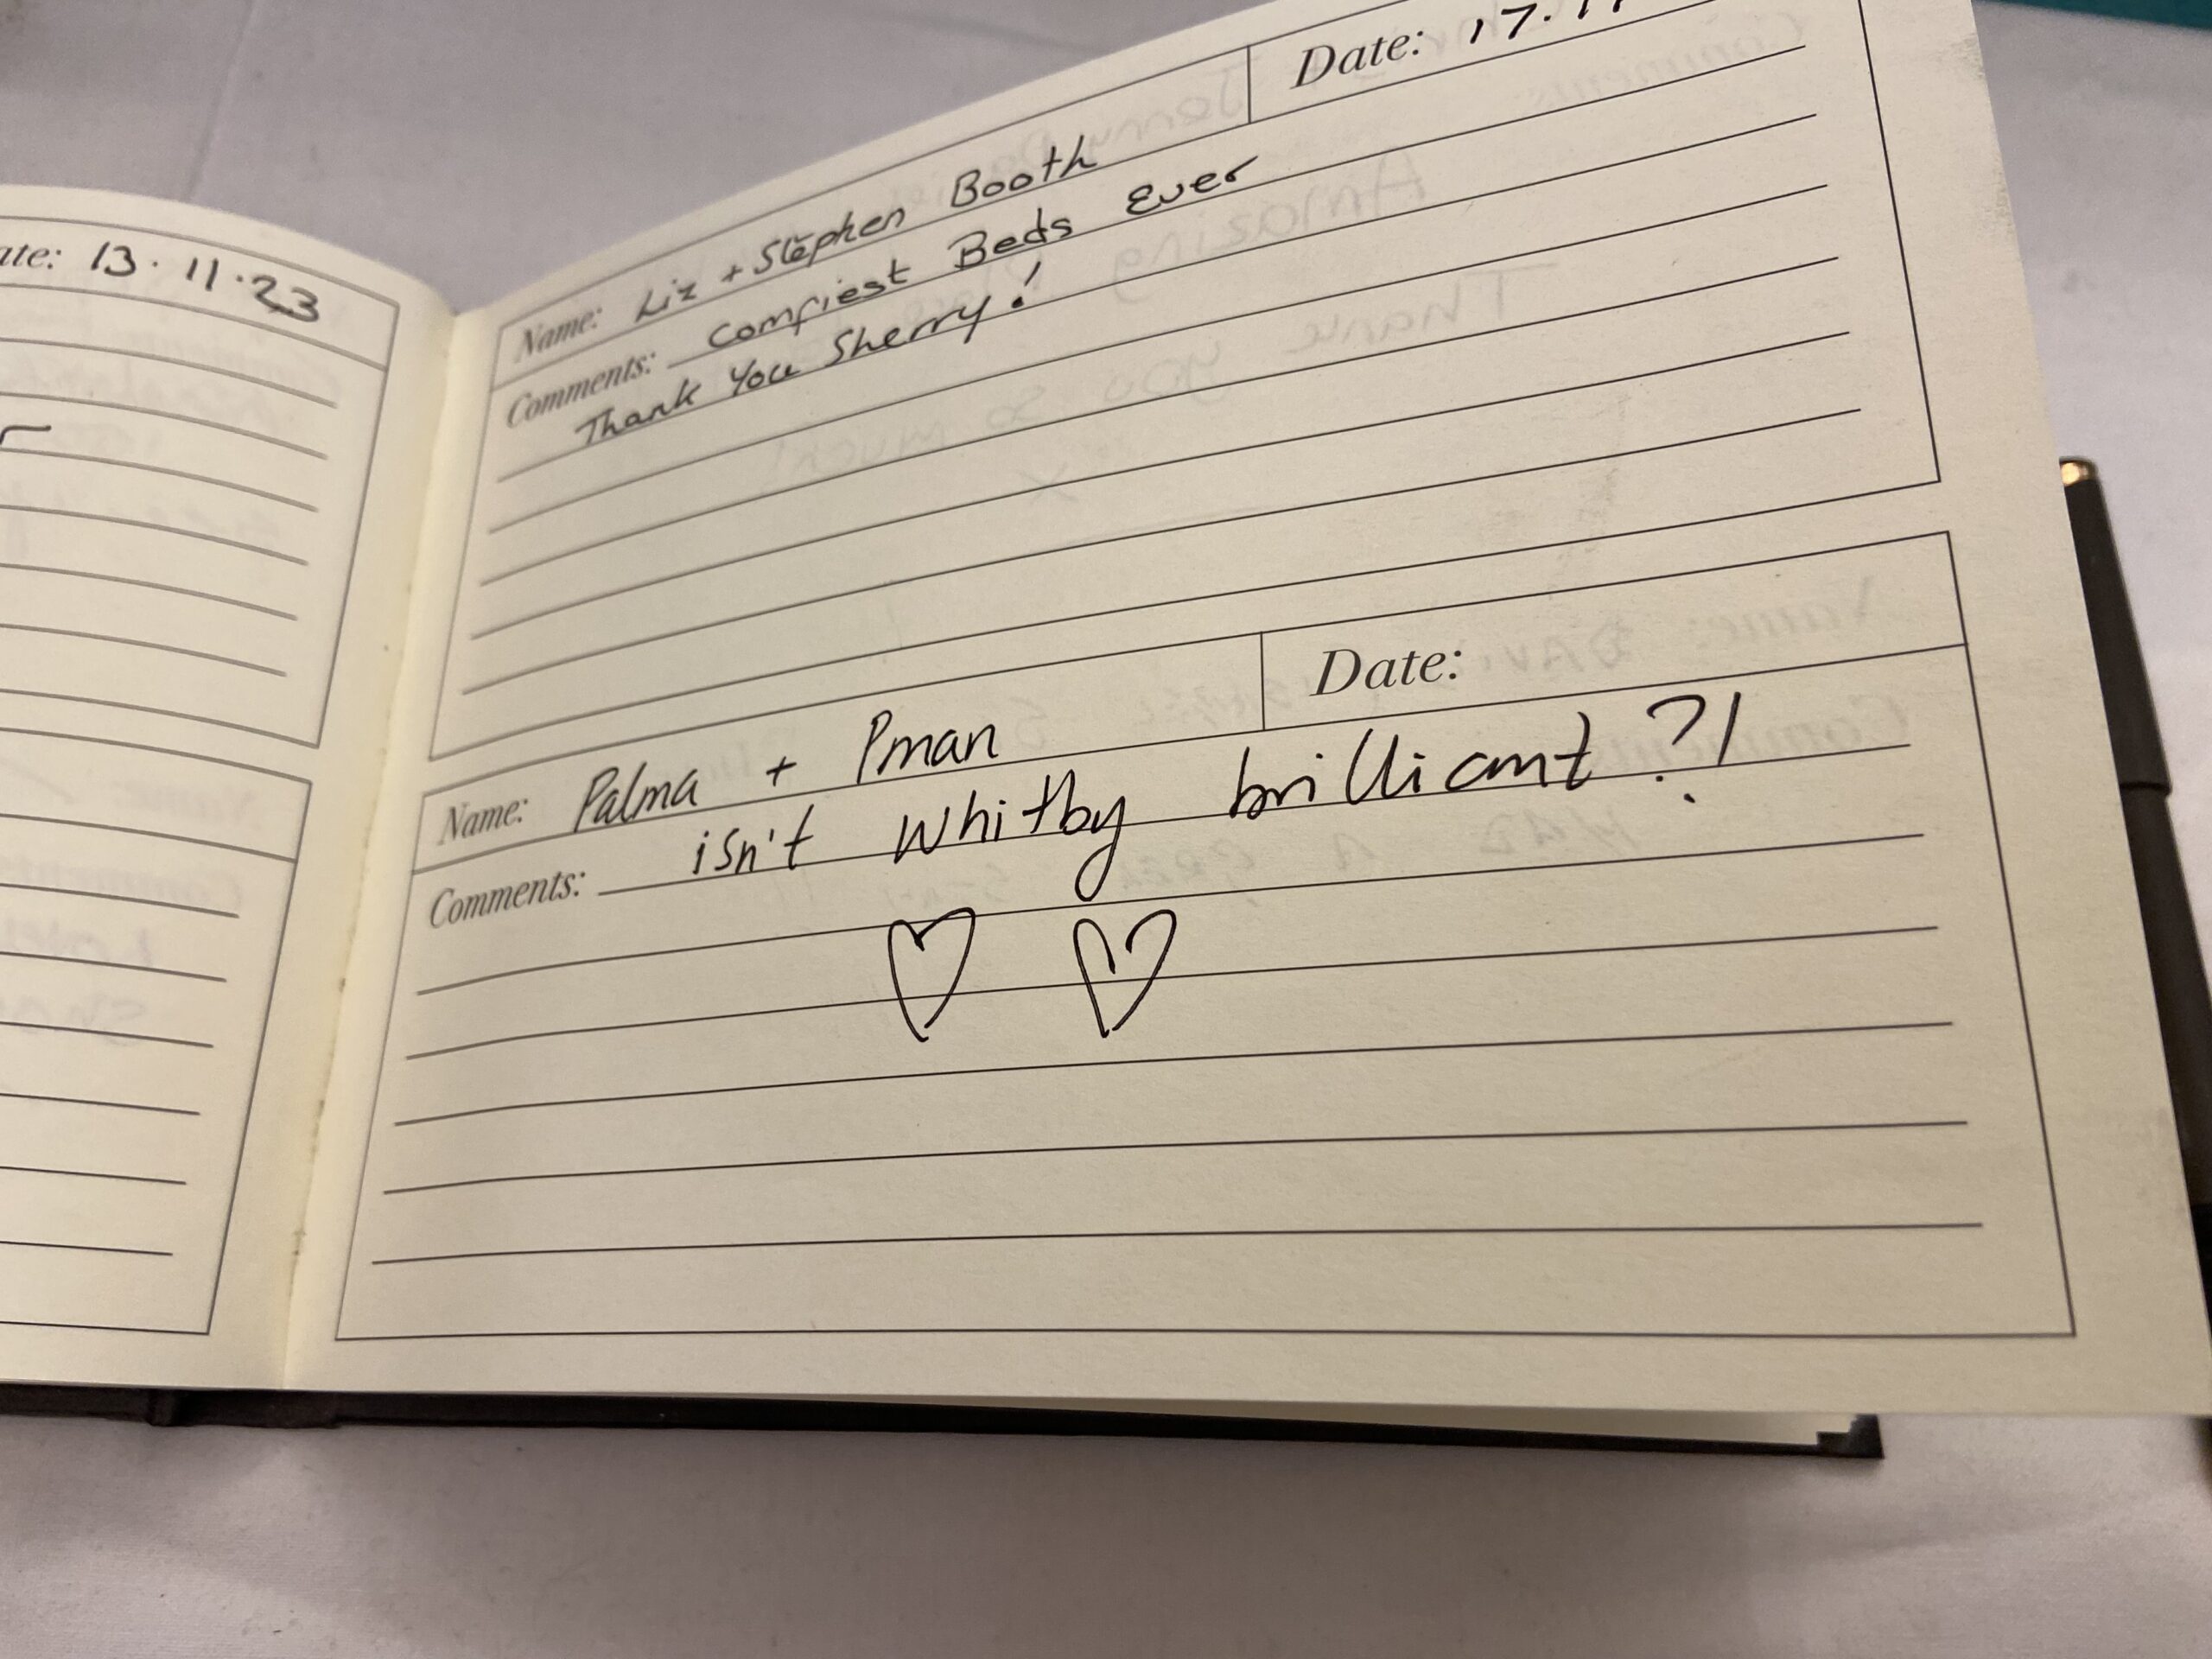 Date: 13.11.23
Date: 17.11
Name: Liz + Stephen Booth
Comments: Comfiest Beds Ever
Thank You Sherry!
Date:
Name: Palma + Pman
Comments: isn't whitby brilliant?!